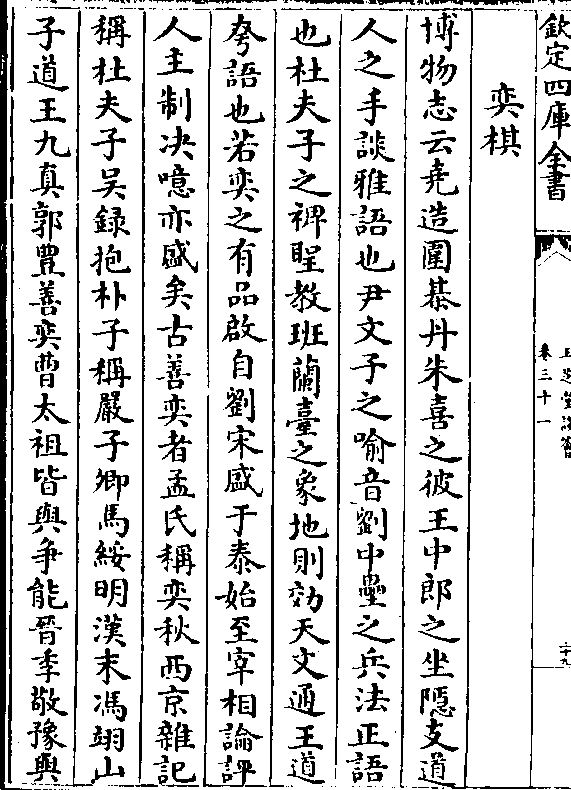 欽定四庫全書
卷三十一
二十九
奕棋
博物志云堯造圍棊丹朱喜之彼王中郎之坐隱支道
人之手談雅語也尹文子之喻音劉中壘之兵法正語
也杜夫子之裨聖教班蘭臺之象地則効天文通王道
夸語也若奕之有品啟自劉宋盛于泰始至宰相論評
人主制决噫亦盛矣古善奕者孟氏稱奕秋西京雜記
稱杜夫子吳録抱朴子稱嚴子卿馬綏明漢末馮翊山
子道王九真郭豊善奕曹太祖皆與争能晉季敬豫與